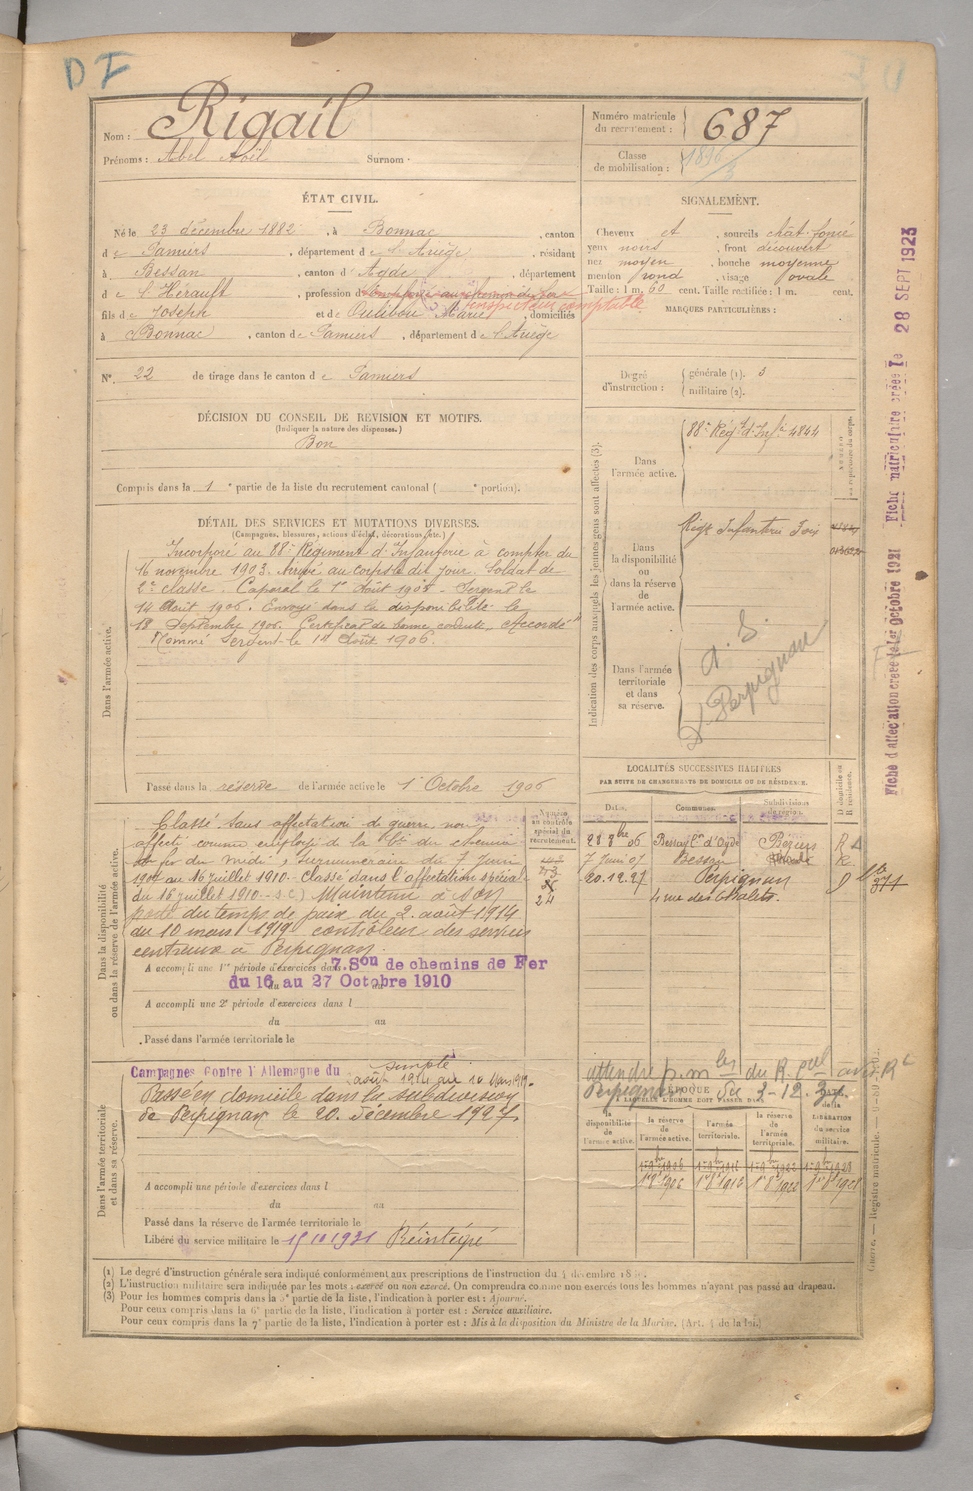 D I
Nom : Rigail
Prénoms : Abel Noël Surnom ·
Numéro matricule du recrutement : 687
Classe de mobilisation :
ÉTAT CIVIL.
Né le 23 décembre 1882, à Bonnac, canton
de Pamiers, département de l'Ariège, résidant
à Bessan, canton d'Agde, département
de l'Hérault, profession d inspecteur comptable
fils de Joseph et de Marie, domiciliés
à Bonnac, canton de Pamiers, département de l'Ariège
N° 22 de tirage dans le canton de Pamiers
SIGNALEMENT.
Cheveux et, sourcils chât. foncé
yeux noirs, front découvert
nez moyen, bouche moyenne
menton rond, visage ovale
Taille : 1 m. 60 cent. Taille rectifiée : 1 m. cent.
MARQUES PARTICULIÈRES :
Degré d'instruction : générale (1). 3
militaire (2).
DÉCISION DU CONSEIL DE REVISION ET MOTIFS.
(Indiquer la nature des dispenses.)
Bon
Compris dans la 1e partie de la liste du recrutement cantonal ( e portion).
DÉTAIL DES SERVICES ET MUTATIONS DIVERSES.
(Campagnes, blessures, actions d'éclat, décorations, etc.)
Dans l'armée active.
Incorporé au 88e Régiment d'Infanterie à compter du
16 novembre 1903. Arrivé au corps le dit jour. Soldat de
2e classe. Caporal le 1er Août 1905. Sergent le
14 Août 1906. Envoyé dans la disponibilité le
18 Septembre 1906. Certificat de bonne conduite "Accordé"
Nommé Sergent le 1er Août 1906.
Passé dans la réserve de l'armée active le 1er Octobre 1906
Indication des corps auxquels les jeunes gens sont affectés (3).
Dans l'armée active.
88e Régt d'Infie 4844
Dans la disponibilité ou dans la réserve de l'armée active.
Régt Infanterie Foix
Dans l'armée territoriale et dans sa réserve.
Perpignan
Fiche d'affectation créée le 1er octobre 1921 Fiche matriculaire créée le 28 SEPT 1923
LOCALITÉS SUCCESSIVES HABITÉES
PAR SUITE DE CHANGEMENTS DE DOMICILE OU DE RÉSIDENCE.
Dates. Communes. Subdivisions de région. D domicile ou R résidence.
28 8bre 06 Bessan Con d'Agde Béziers R
7 Juin 07 Bessan R
20.12.27 Perpignan D
4 rue des
Dans la disponibilité ou dans la réserve de l'armée active.
Numéro au contrôle spécial du recrutement.
24
Classé sans affectation de guerre non
affecté comme employé de la Cie du chemin
de fer du midi, Surnuméraire du 7 Juin
au 16 juillet 1910. Classé dans l'affectation spéciale
du 16 juillet 1910 (S.C) Maintenu à son
poste du temps de paix du 2 août 1914
du 10 mars 1919 contrôleur des services
centraux à Perpignan.
A accompli une 1re période d'exercices dans 7. Son de chemins de Fer
du 16 au 27 Octobre 1910
A accompli une 2e période d'exercices dans l
du au
Passé dans l'armée territoriale le
Dans l'armée territoriale et dans sa réserve.
Campagnes Contre l'Allemagne du simple
août 1914 au 10 Mars 1919.
Passé en domicile dans la subdivision
de Perpignan le 20 décembre 1927.
A accompli une période d'exercices dans l
du au
Passé dans la réserve de l'armée territoriale le
Libéré du service militaire le 15 10 1931 Réintégré
Perpignan du 3-12.
ÉPOQUE
À LAQUELLE L'HOMME DOIT PASSER DANS
la disponibilité de l'armée active. la réserve de l'armée active. l'armée territoriale. la réserve de l'armée territoriale. DATE de la LIBÉRATION du service militaire.
(1) Le degré d'instruction générale sera indiqué conformément aux prescriptions de l'instruction du 4 décembre
(2) L'instruction militaire sera indiquée par les mots : exercé ou non exercé. On comprendra comme non exercés tous les hommes n'ayant pas passé au drapeau.
(3) Pour les hommes compris dans la 5e partie de la liste, l'indication à porter est : Ajourné.
Pour ceux compris dans la 6e partie de la liste, l'indication à porter est : Service auxiliaire.
Pour ceux compris dans la 7e partie de la liste, l'indication à porter est : Mis à la disposition du Ministre de la Marine. (Art. 4 de la loi.)